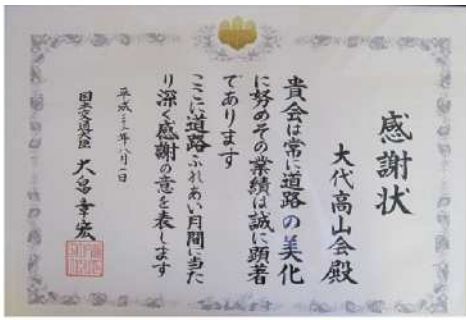 感謝状
大代高山会殿
貴会は常に道路の美化
に努めその業績は誠に顕著
であります
ここに道路ふれあい月間に当た
り深く感謝の意を表します
平成二十三年八月一日
国土交通大臣 大畠章宏